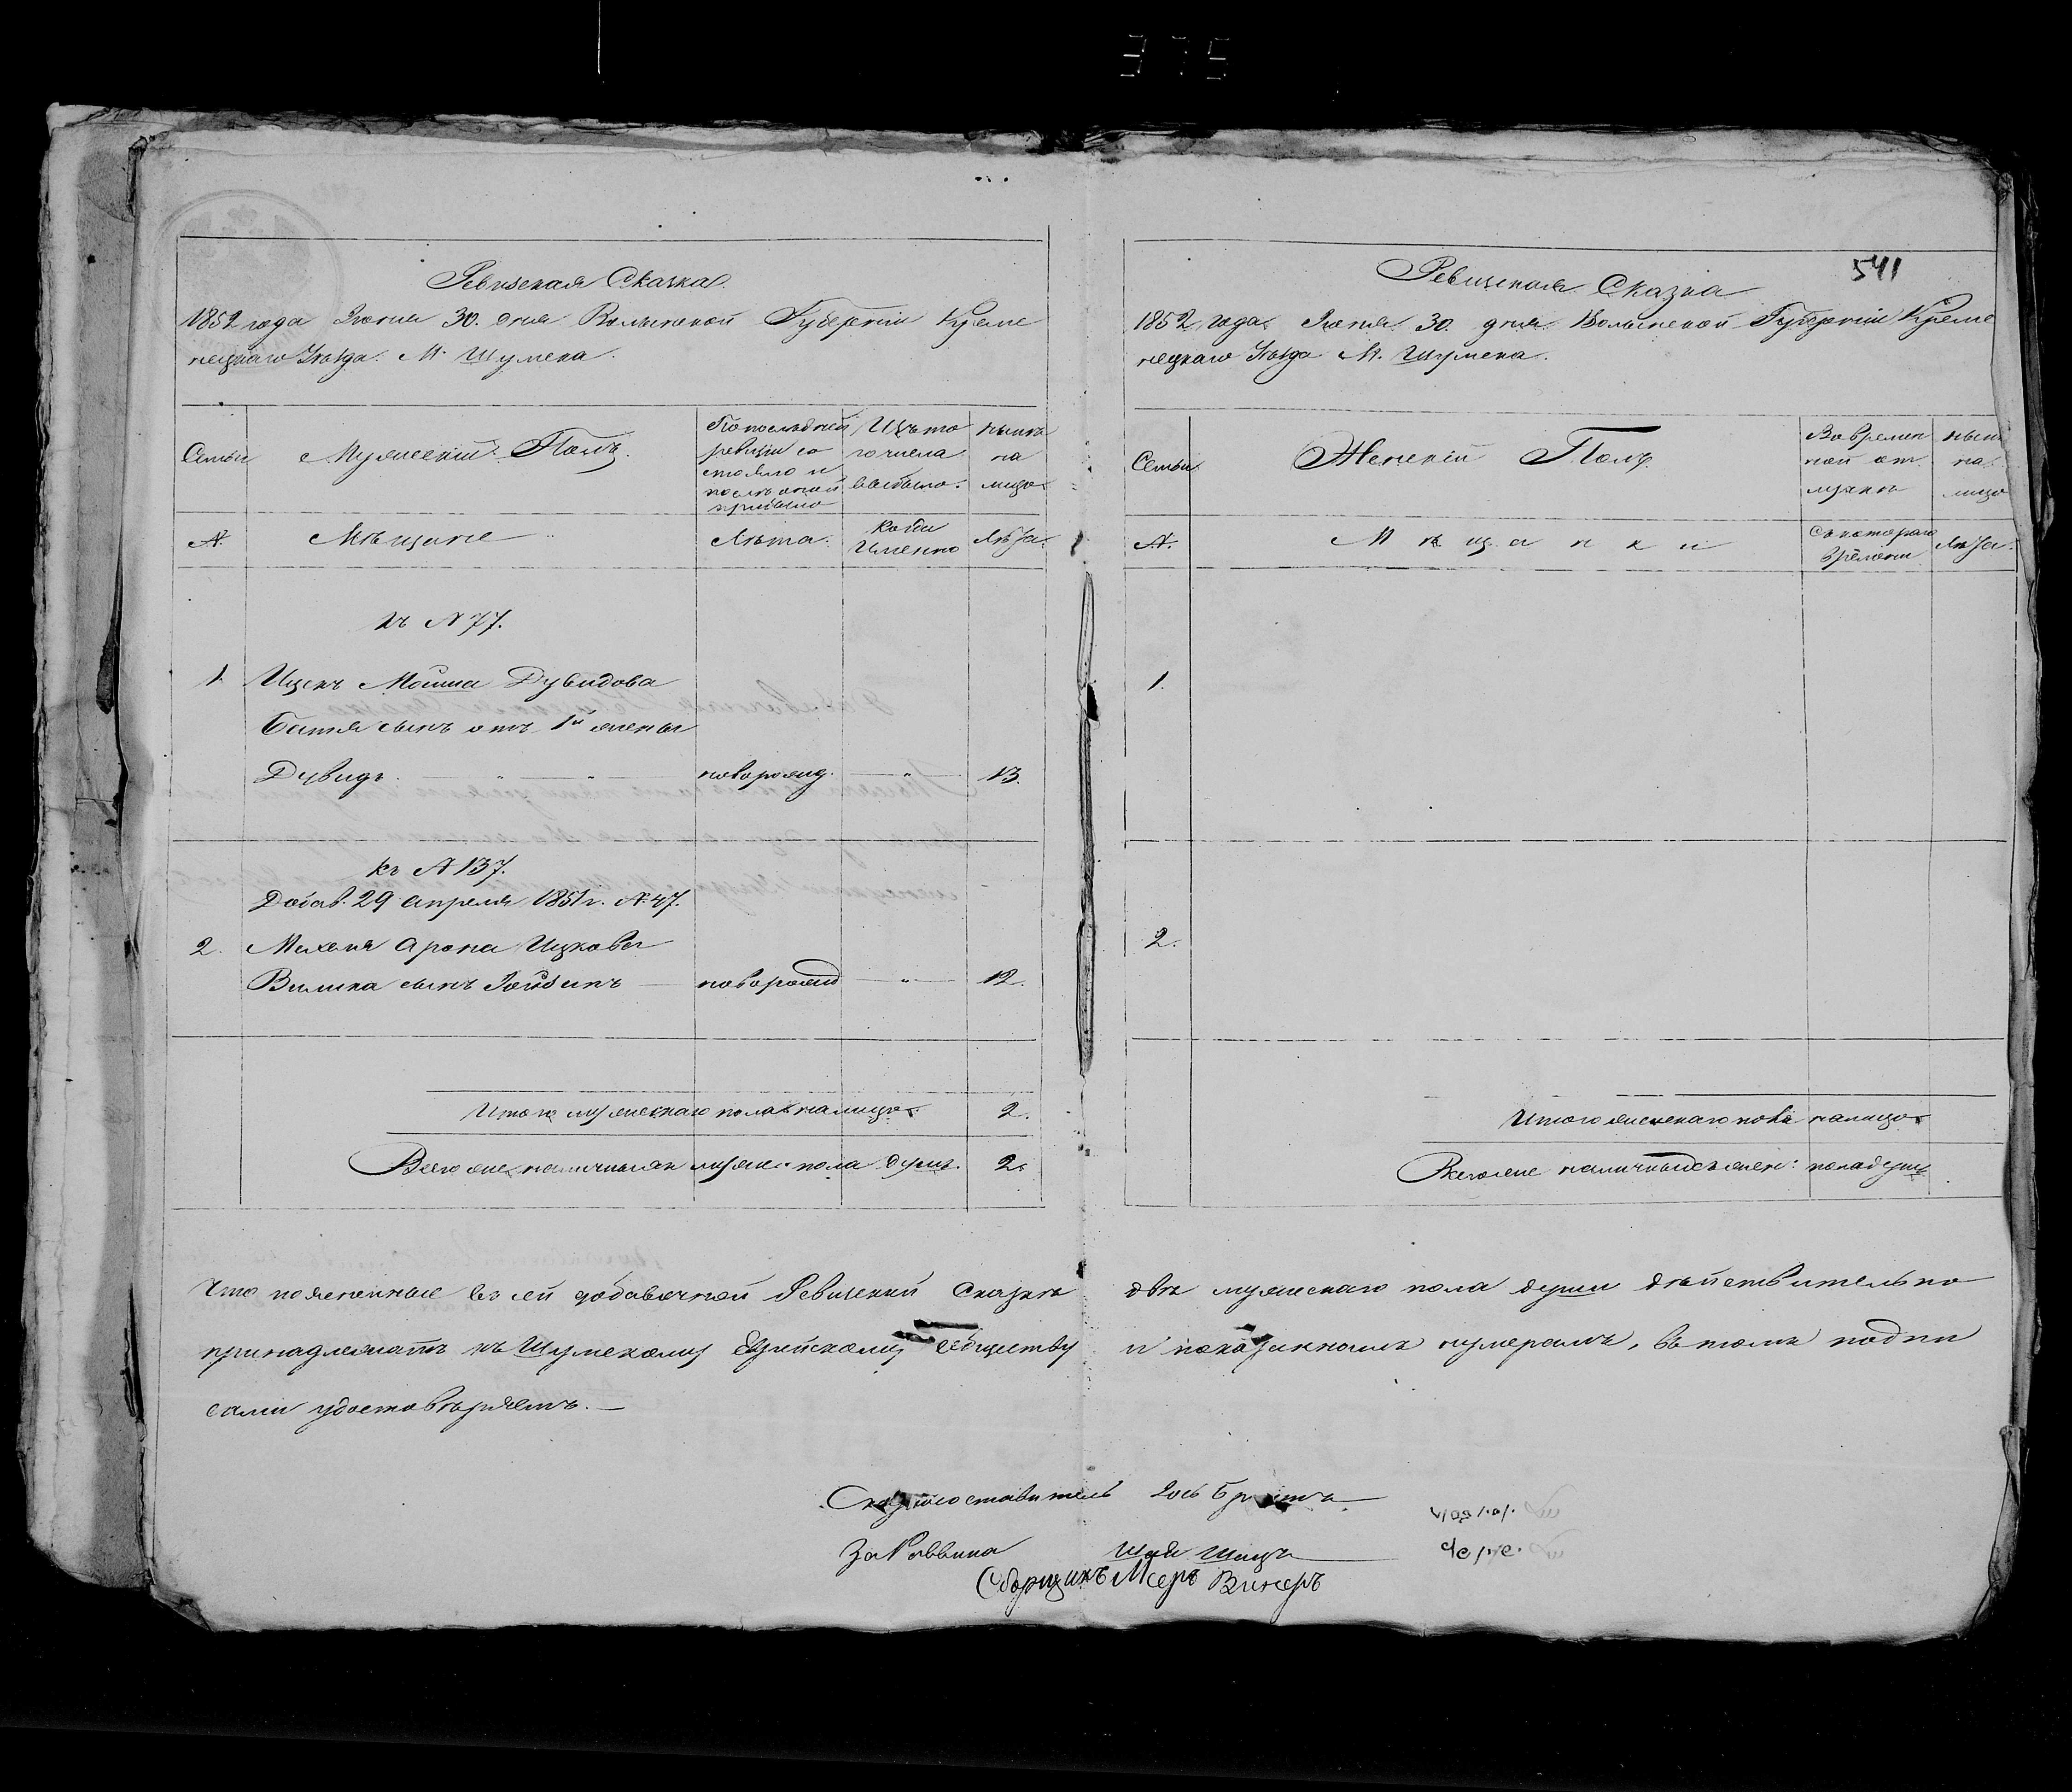 375
Ревизская Сказка
1852 года Июня 30. дня Волынской Губернии Креме
нецкаго Уѣзда М. Шумска.
Семьи
Мужескій Полъ.
По последней
ревизіи со
стояло и
послѣ оной
прибыло
Изъ то
го числа
выбыло.
нынѣ
на
лицо
№
Мѣщане
Лѣта.
Когда
Именно
Лѣта.
къ № 77.
1. Ицекъ Мошка Дувидова
сынъ отъ 1й жены
Дувидъ новорожд. 13.
къ № 137.
Добав. 29 Апреля 1851 г. № 47.
2. Арона Ицкова
сынъ новорожд 12.
Итого мужескаго пола налицо 2.
Всего же наличныхъ муже: пола душъ. 2.
Ревизская Сказка
541
1852 года Июня 30. дня Волынской Губерніи Креме
нецкаго Уѣзда М. Шумска.
Семьи
Женскій Полъ.
Во времен
ной от
лучкѣ
нынѣ
на
лицо
№.
Мѣщанки
Съ котораго
времени
Лѣта.
1.
2.
Итого женскаго пола налицо
Всего же наличныхъ жен: пола душъ
Что поясненные въ сей добавочной Ревизской Сказкѣ двѣ мужескаго пола души дѣйствительно
принадлежатъ къ Шумскому Еврейскому обществу и показаннымъ нумерамъ, въ томъ подпи
сами удостовѣряемъ.
Сказкосоставитель Іось
За Раввина Шая Шицъ
Сборщикъ Мееръ Винеръ